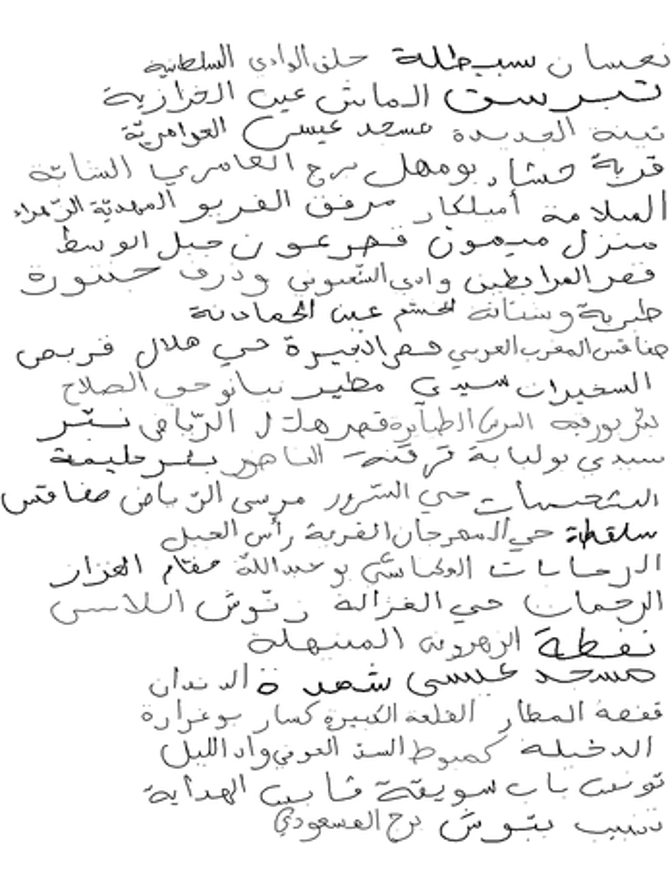 نعسان سبيطلة حلق الوادي السلطانية
تبرست الماش عين الخرازية
تينة الجديدة مسجد عيسى العوامريّة
قرية حشاد بومهل برج العامري الشابّة
السلامة أميلكار مرفق الفريو المهديّة الزّهراء
منزل ميمون قصر عون جبل الوسط
قصر المرابطين وادي وذرف
طبرية وشتاتة الخشم عين الحمادنة
صفاقس المغرب العربي حي هلال قربص
السخيرات سيدي مطير حي الصلاح
بئر بورقبة البرك الطبايرة قصر هلال الرّياض
سيدي بولبابة قرقنة الناظور بئر حليمة
الشحيمات حي السّرور مرسى الرّياض صفاقس
سلقطة حي المهرجان القرية رأس الجبل
الرحابات بوعبدالله
الرحمان حي الغزالة زنّوش اللاسى
نفطة الزهروني المنيهلة
مسجد عيسى الدندان
قفصة المطار القلعة الكبيرة كسار بوغرارة
الدخيلة السدّ العوني واد الليل
تونس باب سويقة قابس الهداية
بتوش برج المسعودي